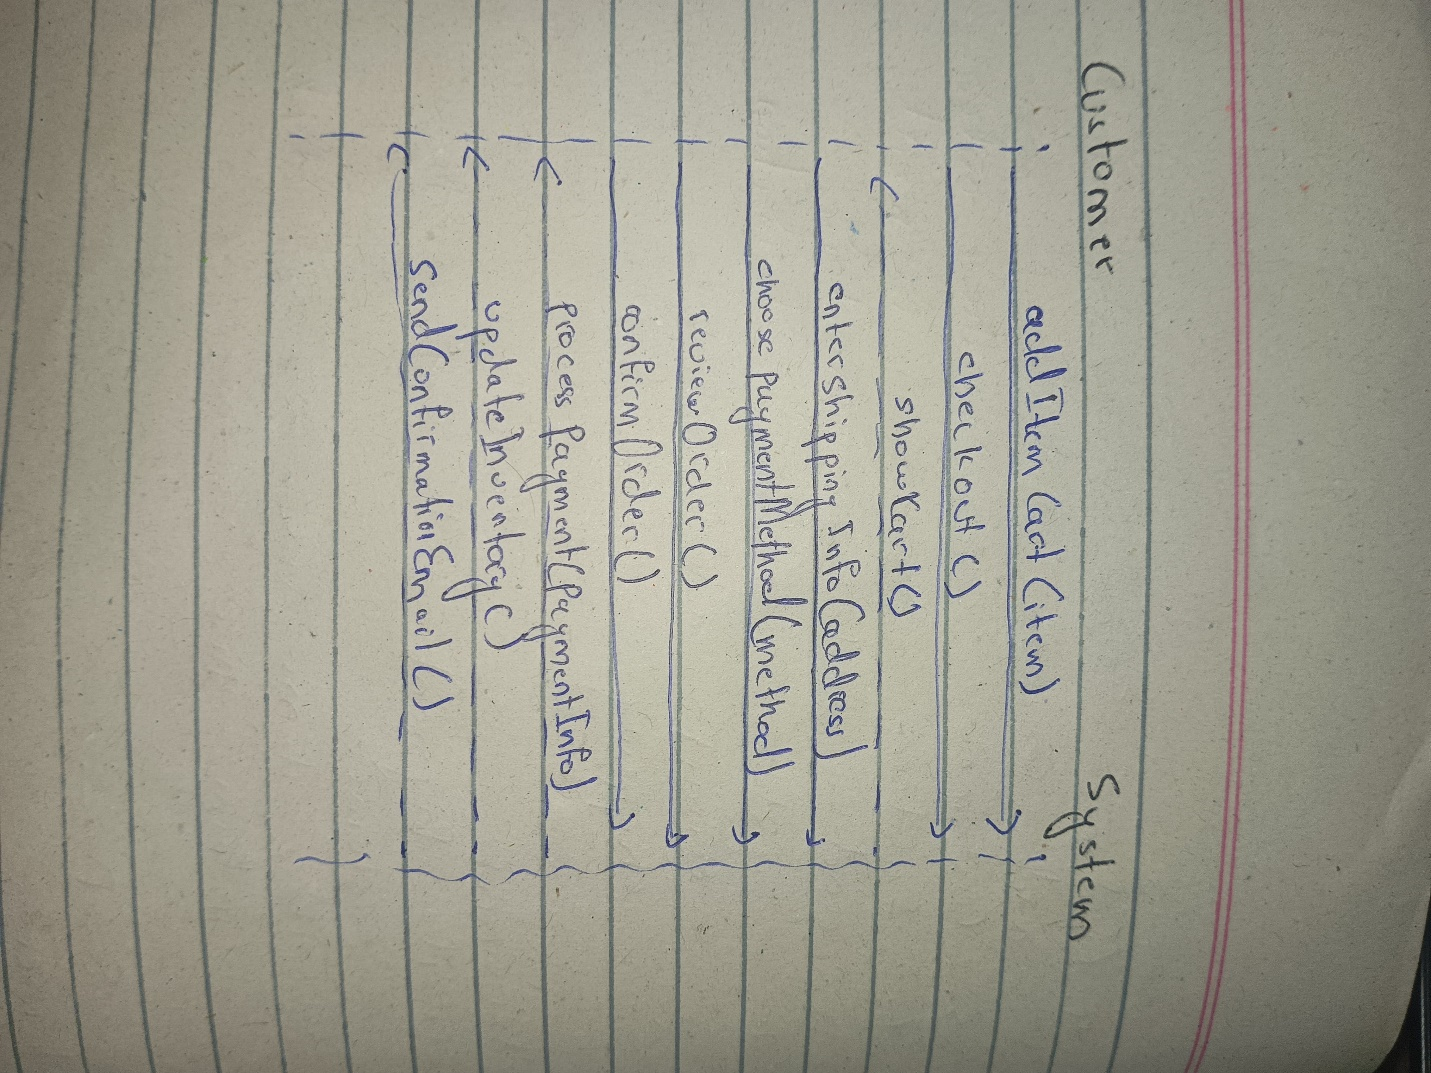 Customer System
addItem Cart (item)
checkout ()
showKart ()
enter shipping Info (address)
choose paymentMethod (method)
reviewOrder ()
confirm Order ()
process Payment (PaymentInfo)
updateInventory ()
SendConfirmationEmail ()